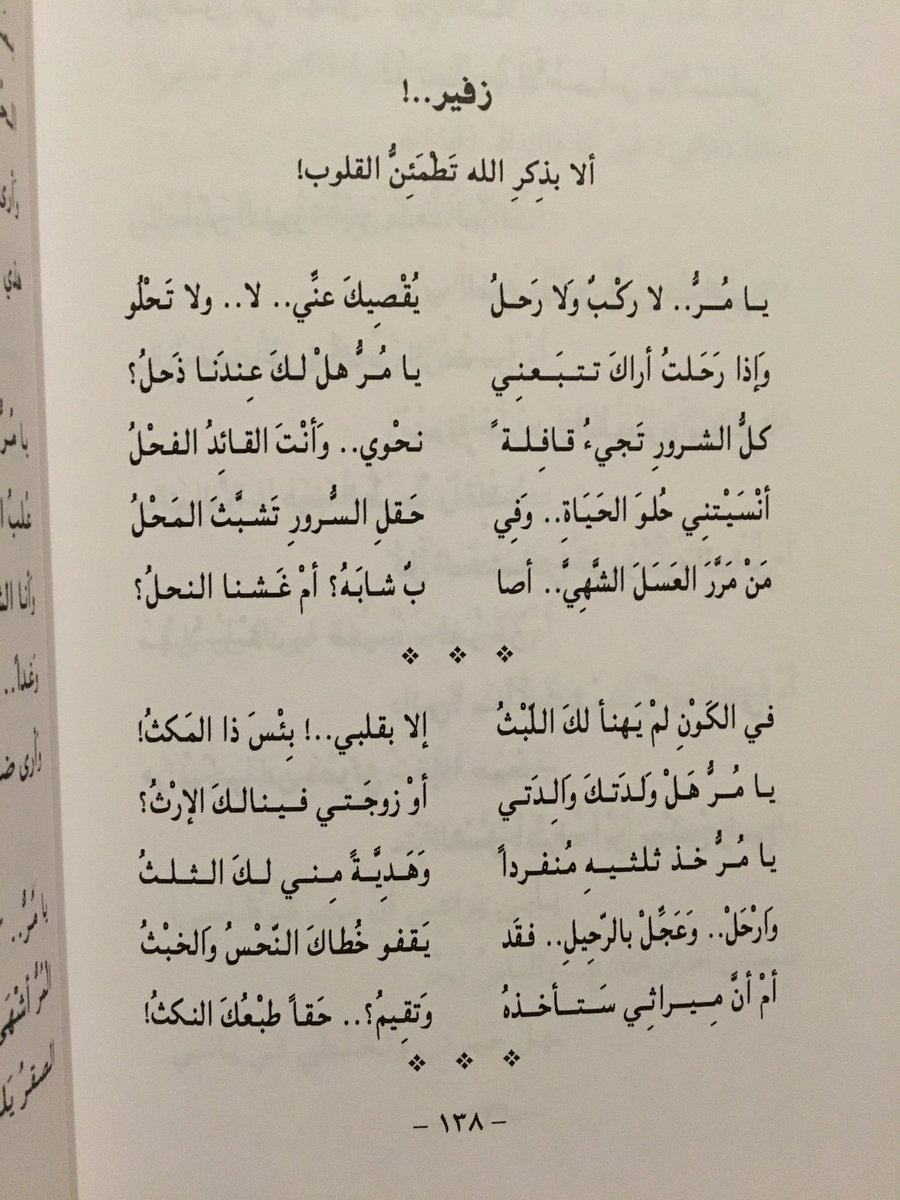 زفير..!
ألا بذِكرِ الله تَطْمَئِنُّ القلوب!
يـا مُـرُّ.. لا ركْـبٌ وَلا رَحـلُ يُقْصِيكَ عنِّي.. لا.. ولا تَحْلُو
وَإذا رَحَلتُ أراكَ تـتـبَـعـنِـي يـا مُـرُّ هلْ لـكَ عِندَنَـا ذَحلُ؟
كلُّ الشـرورِ تَجيءُ قـافِـلـةً نحْوي.. وَأنْتَ القَائِدُ الفحْلُ
أنْسَيْتنِي حُلوَ الحَيَـاةِ.. وَفِي حَـقلِ السُّـرورِ تَشبَّثَ المَحْلُ
مَنْ مَرَّرَ العَسَلَ الشَّهِيَّ.. أصا بٌ شـابَـهُ؟ أمْ غَـشنـا النحلُ؟
❖ ❖ ❖
في الكَوْنِ لمْ يَهنأ لكَ اللّبْثُ إلا بقلبي..! بِئْسَ ذا المَكثُ!
يـا مُـرُّ هَلْ وَلـدَتـكَ وَالِـدَتي أوْ زوجَـتـي فـيـنـالـكَ الإرْثُ؟
يـا مُـرُّ خـذ ثلـثـيـهِ مُنفـرداً وَهَـدِيَّـةً مِـنـي لـكَ الـثـلـثُ
وَارْحَلْ.. وَعَجِّلْ بالرّحِيلِ.. فقَد يَـقفـو خُطاكَ النّحْسُ وَالخبْثُ
أمْ أنَّ مِـيـراثِي سَـتـأخـذهُ وَتَقِيمُ؟.. حَقاً طبْعُكَ النكثُ!
❖ ❖ ❖
– ١٣٨ –